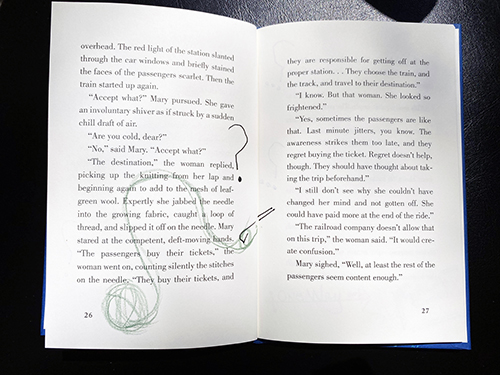 overhead. The red light of the station slanted
through the car windows and briefly stained
the faces of the passengers scarlet. Then the
train started up again.
“Accept what?” Mary pursued. She gave
an involuntary shiver as if struck by a sudden
chill draft of air.
“Are you cold, dear?”
“No,” said Mary. “Accept what?”
“The destination,” the woman replied,
picking up the knitting from her lap and
beginning again to add to the mesh of leaf-
green wool. Expertly she jabbed the needle
into the growing fabric, caught a loop of
thread, and slipped it off on the needle. Mary
stared at the competent, deft-moving hands.
“The passengers buy their tickets,” the
woman went on, counting silently the stitches
on the needle. “They buy their tickets, and
?
26
they are responsible for getting off at the
proper station. . . They choose the train, and
the track, and travel to their destination.”
“I know. But that woman. She looked so
frightened.”
“Yes, sometimes the passengers are like
that. Last minute jitters, you know. The
awareness strikes them too late, and they
regret buying the ticket. Regret doesn’t help,
though. They should have thought about tak-
ing the trip beforehand.”
“I still don’t see why she couldn’t have
changed her mind and not gotten off. She
could have paid more at the end of the ride.”
“The railroad company doesn’t allow that
on this trip,” the woman said. “It would cre-
ate confusion.”
Mary sighed, “Well, at least the rest of the
passengers seem content enough.”
27